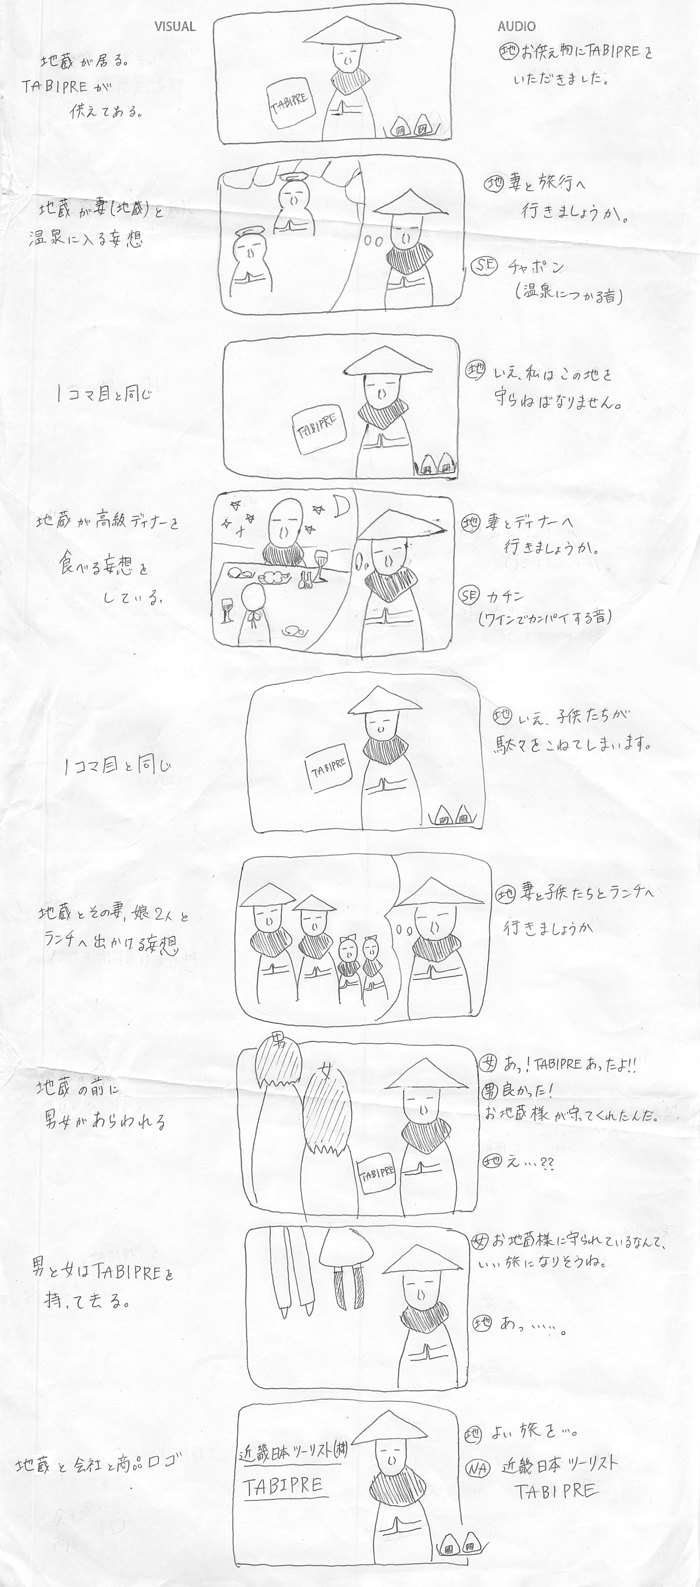 VISUAL
AUDIO
地蔵が居る。
TABIPREが
供えてある。
TABIPRE
地 お供え物にTABIPREを
いただきました。
地蔵が妻(地蔵)と
温泉に入る妄想
地 妻と旅行へ
行きましょうか。
SE チャポン
(温泉につかる音)
1コマ目と同じ
TABIPRE
地 いえ、私はこの地を
守らねばなりません。
地蔵が高級ディナーを
食べる妄想を
している。
地 妻とディナーへ
行きましょうか。
SE カチン
(ワインでカンパイする音)
1コマ目と同じ
TABIPRE
地 いえ、子供たちが
駄々をこねてしまいます。
地蔵とその妻、娘2人と
ランチへ出かける妄想
地 妻と子供たちとランチへ
行きましょうか
地蔵の前に
男女があらわれる
男
女
TABIPRE
女 あっ!TABIPREあったよ!!
男 良かった!
お地蔵様が守ってくれたんだ。
地 え…??
男と女はTABIPREを
持って去る。
女 お地蔵様に守られているなんて、
いい旅になりそうね。
地 あっ……。
地蔵と会社と商品ロゴ
近畿日本ツーリスト(株)
TABIPRE
地 よい旅を…。
NA 近畿日本ツーリスト
TABIPRE